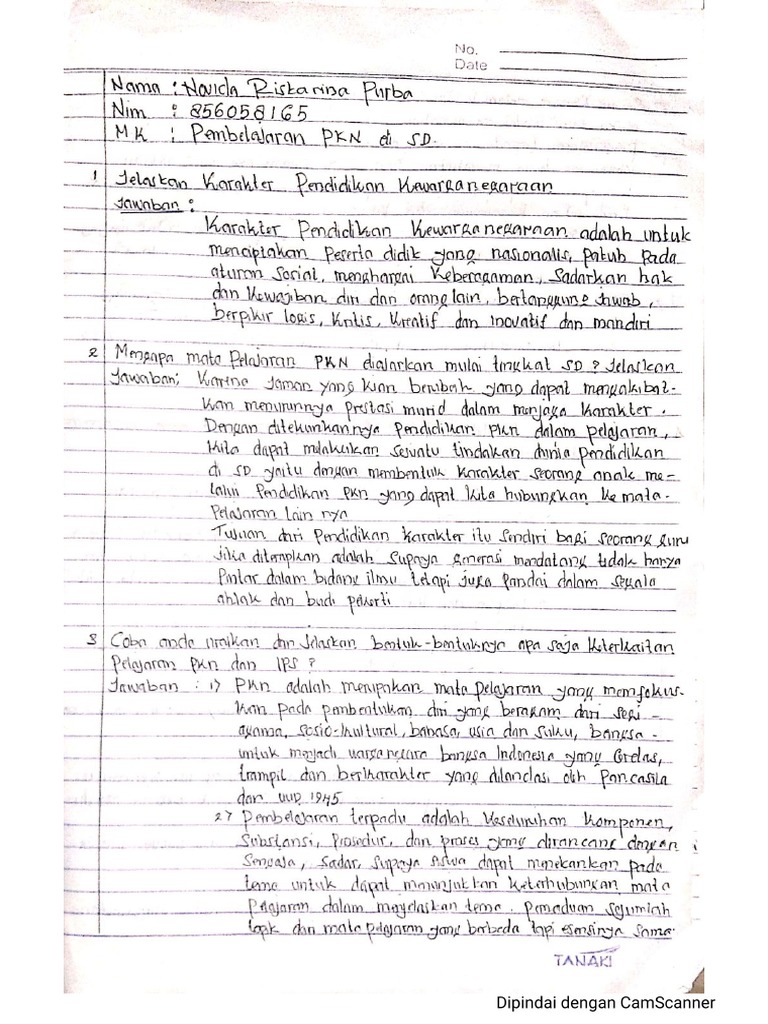 No.
Date
Nama : Novida Riskarina Purba
Nim : 856058165
MK : Pembelajaran PKN di SD.
1 Jelaskan Karakter Pendidikan Kewarganegaraan
Jawaban :
Karakter Pendidikan Kewarganegaraan adalah untuk
menciptakan Peserta didik yang nasionalis, patuh pada
aturan Sosial, menghargai Keberagaman, Sadarkan hak
dan Kewajiban diri dan orang lain, bertanggung Jawab,
berpikir logis, Kritis, Kreatif dan inovatif dan mandiri
2 Mengapa mata Pelajaran PKN diajarkan mulai tingkat SD ? Jelaskan
Jawaban; Karina Jaman yang kian berubah yang dapat mengakibat-
kan menurunnya prestasi murid dalam menjaga Karakter.
Dengan ditekunkannya Pendidikan PKn dalam pelajaran,
Kita dapat melakukan sesuatu tindakan dunia pendidikan
di SD yaitu dengan membentuk Karakter seorang anak me-
lalui Pendidikan PKn yang dapat Kita hubungkan ke mata-
Pelajaran lain nya
Tujuan dari Pendidikan Karakter itu Sendiri bagi seorang guru
Jika diterapkan adalah Supaya generasi mendatang tidak hanya
Pintar dalam bidang ilmu tetapi juga Pandai dalam segala
ahlak dan budi pekerti
3 Coba anda uraikan dan Jelaskan bentuk-bentuknya apa saja Keterkaitan
Pelajaran PKn dan IPS ?
Jawaban : 1) PKn adalah merupakan mata pelajaran yang memfokus-
kan pada pembentukan diri yang beragam dari segi -
agama, sosio-kultural, bahasa, usia dan suku, bangsa -
untuk menjadi warganegara bangsa Indonesia yang Cerdas,
trampil dan berkarakter yang dilandasi oleh Pancasila
dan UUD 1945
2) Pembelajaran terpadu adalah Keseluruhan Komponen,
Substansi, Prosedur, dan proses yang dirancang dengan
Sengaja, Sadar, Supaya siswa dapat menekankan pada
tema untuk dapat menunjukkan Keterhubungan mata
Pelajaran dalam menjelaskan tema. Pemaduan sejumlah
topik dan mata pelajaran yang berbeda tapi esensinya sama.
TANAKI
Dipindai dengan CamScanner